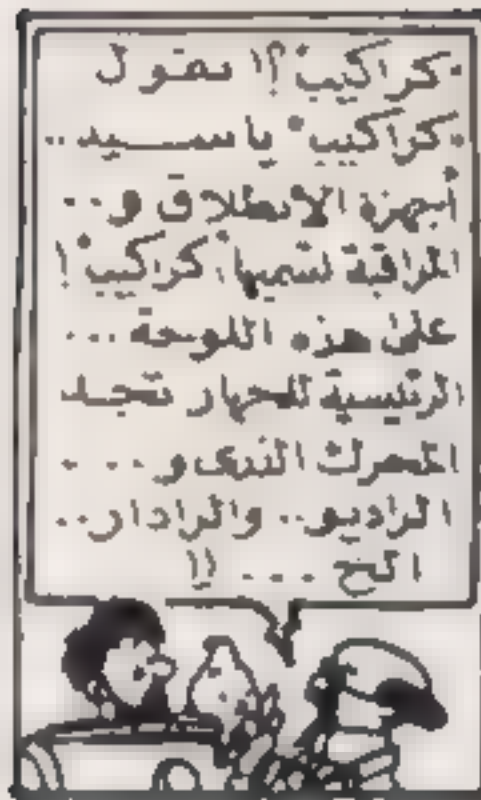 "كراكيب"؟! تقول
"كراكيب" يا سيد ..
أجهزة الانطلاق و..
المراقبة تسميها "كراكيب"!
على هذه اللوحة ...
الرئيسية للجهاز تجد
المحرك النووي و...
الراديو.. والرادار..
الخ ... !!